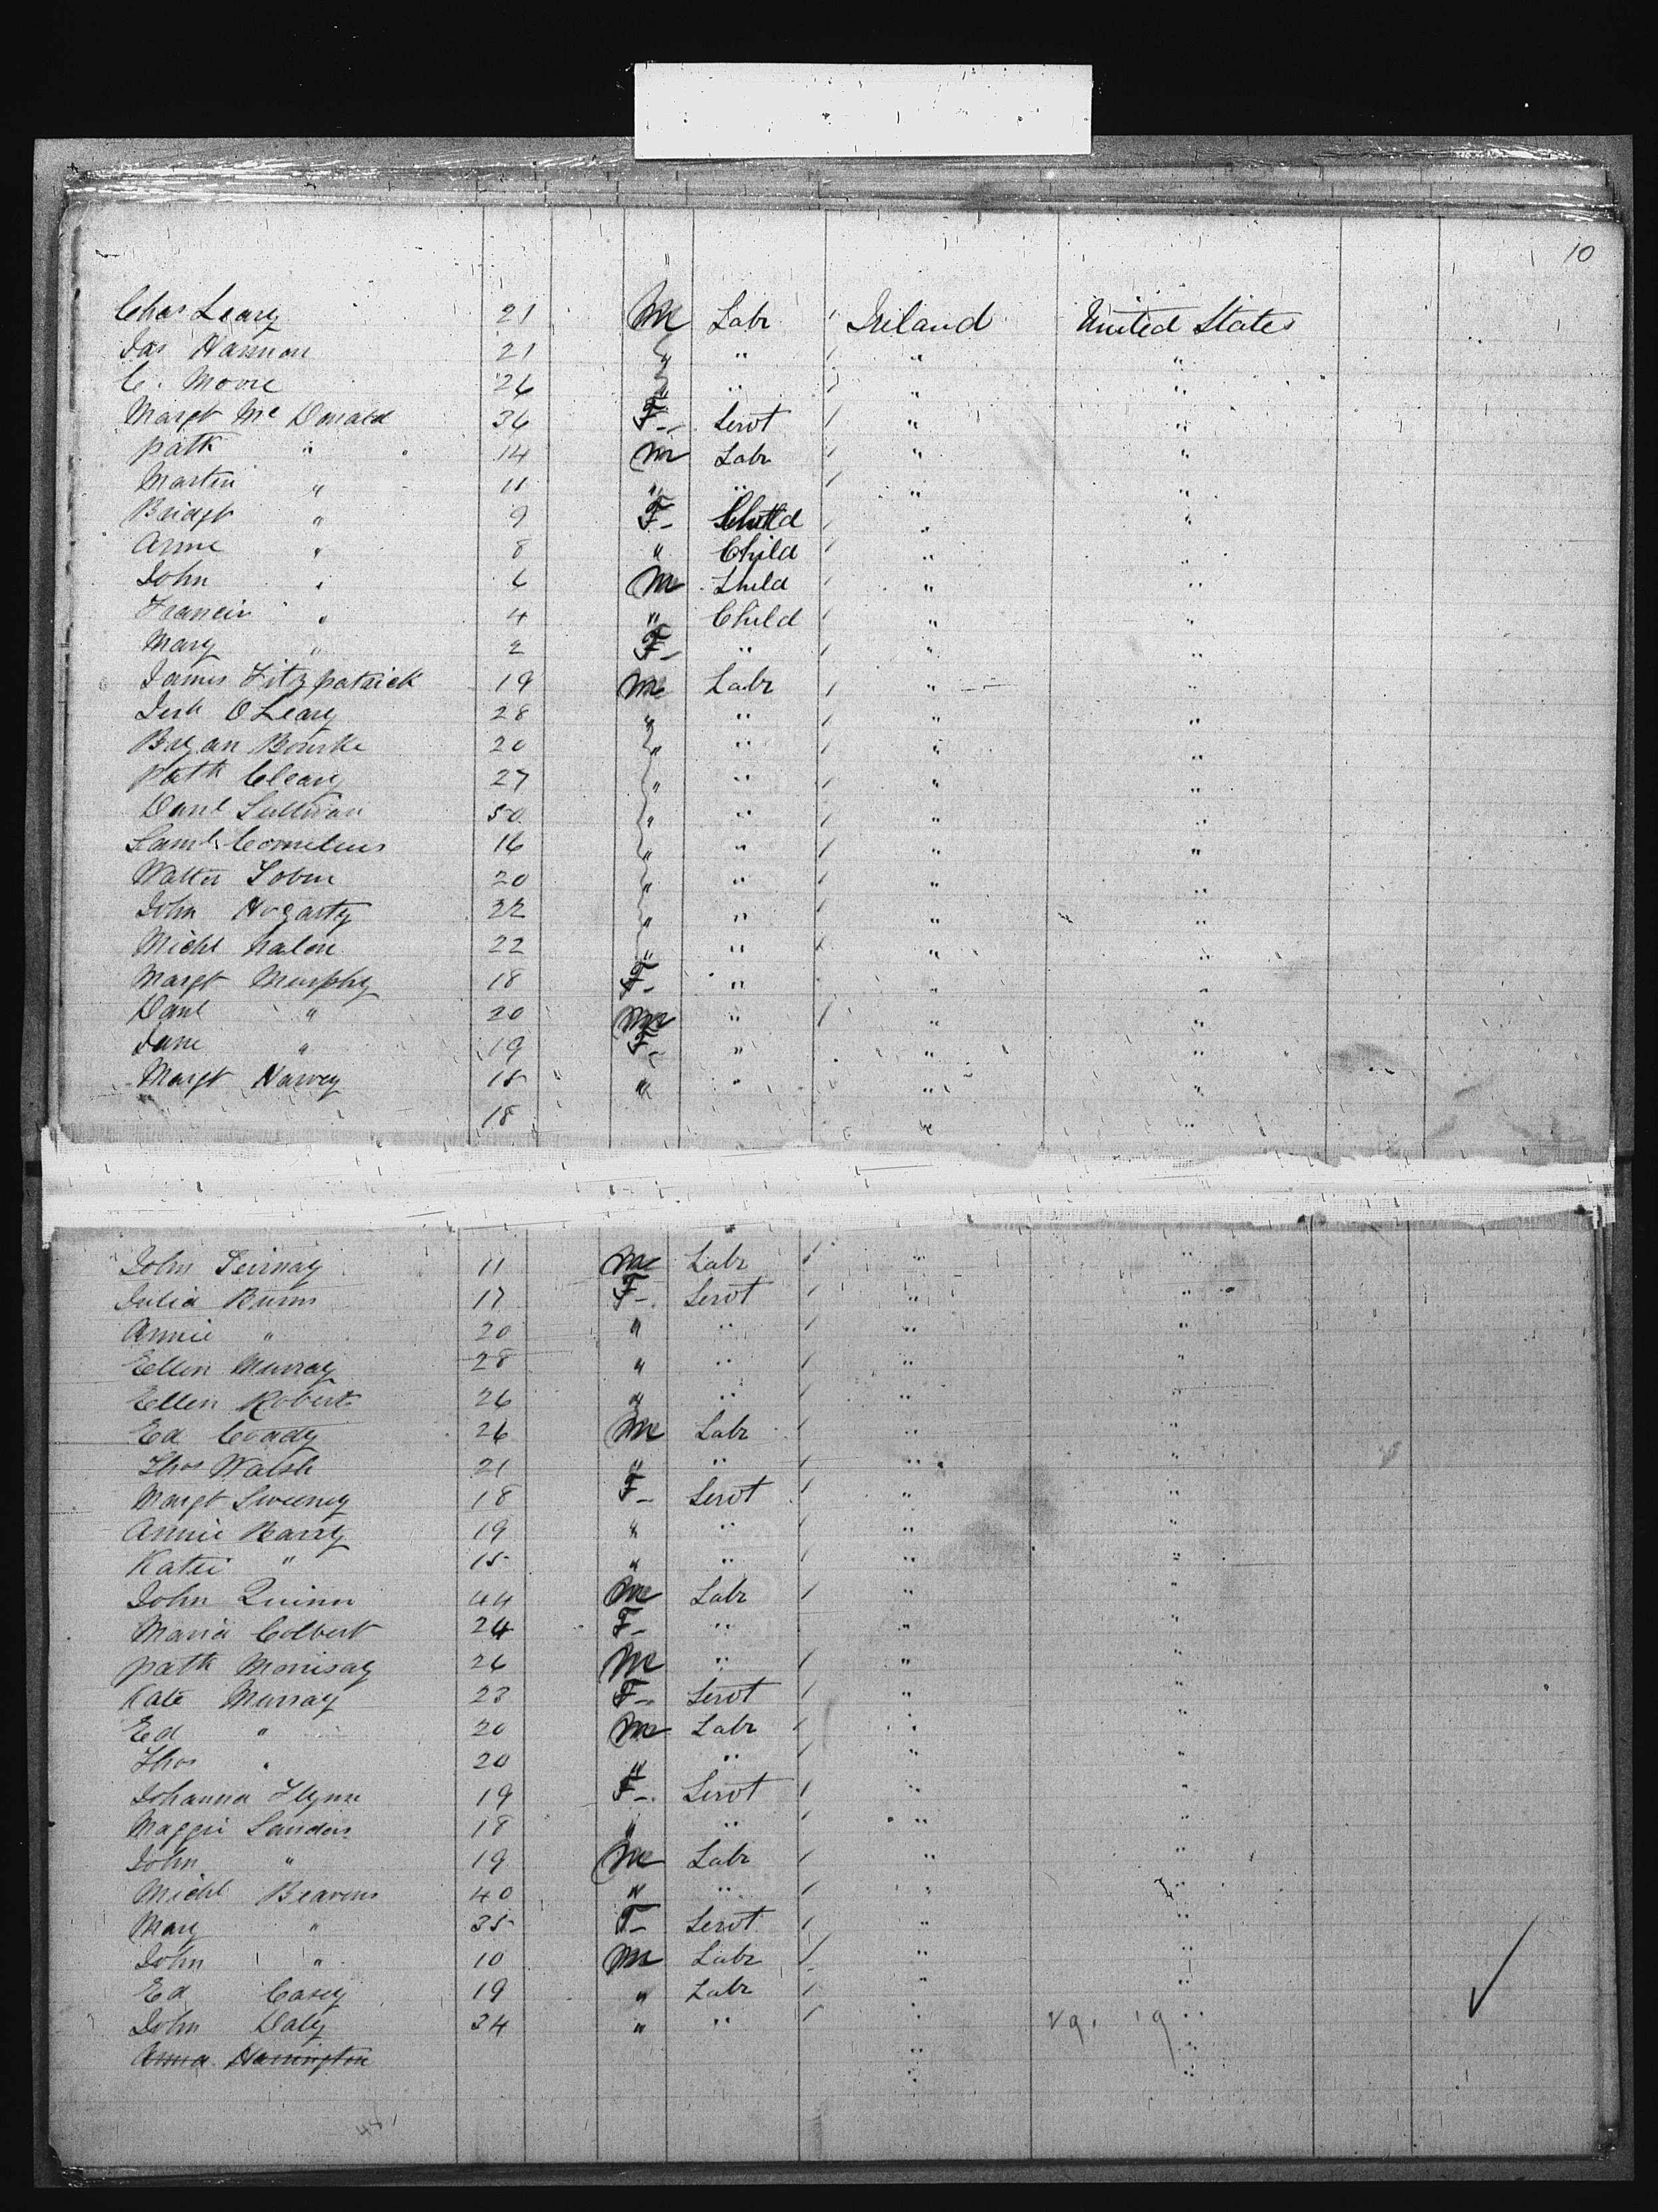 10
Chas Leary 21 M Labr 1 Ireland United States
Jas Hannon 21 " " 1 " "
C. Moore 26 " " 1 " "
Margt McDonald 36 F- Servt 1 " "
patk " 14 M Labr 1 " "
Martin " 11 " " 1 " "
Bridgt " 9 F- Child 1 " "
Anne " 8 " Child 1 " "
John " 6 M Child 1 " "
Francis " 4 " Child 1 " "
Mary " 2 F- " 1 " "
James Fitzpatrick 19 M Labr 1 " "
Jerh O Leary 28 " " 1 " "
Bryan Bourke 20 " " 1 " "
patk Cleary 27 " " 1 " "
Danl Sullivan 50 " " 1 " "
Saml Cornelius 16 " " 1 " "
Walter Tobin 20 " " 1 " "
John Hogarty 22 " " 1 " "
Michl Nalon 22 " " 1 " "
Margt Murphy 18 F- " " "
Danl " 20 M " 1 " "
Jane " 19 F- " " "
Margt Harvey 15 " " " "
18 " "
John 11 M Labr 1 " "
Julia Burns 17 F- Servt 1 " "
Annie " 20 " " 1 " "
Ellen Murray 28 " " 1 " "
Ellen Roberts 26 " " 1 " "
Ed Coady 26 M Labr 1 " "
Thos Walsh 21 " " 1 " "
Margt Sweeney 18 F- Servt 1 " "
Annie Barry 19 " " 1 " "
Katie " 15 " " 1 " "
John Quinn 44 M Labr 1 " "
Maria Colbert 24 F- " " "
patk Morrisay 26 M " 1 " "
Kate Murray 23 F- Servt 1 " "
Ed " 20 M Labr 1 " "
Thos " 20 " " 1 " "
Johanna Flynn 19 F- Servt 1 " "
Maggie Landers 18 " " 1 " "
John " 19 M Labr 1 " "
Michl Beavens 40 " " 1 " "
Mary " 35 F- Servt 1 " "
John " 10 M Labr 1 " "
Ed Casey 19 " Labr 1 " "
John Daly 34 " " 1 " "
Anna Harrington " "